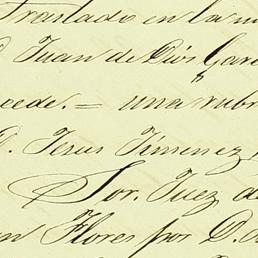 Traslado en la
D. Juan de Dios Gar
cede. = una rubr
D. Jesus Jimenez
Sor. Juez de
n Flores por D.